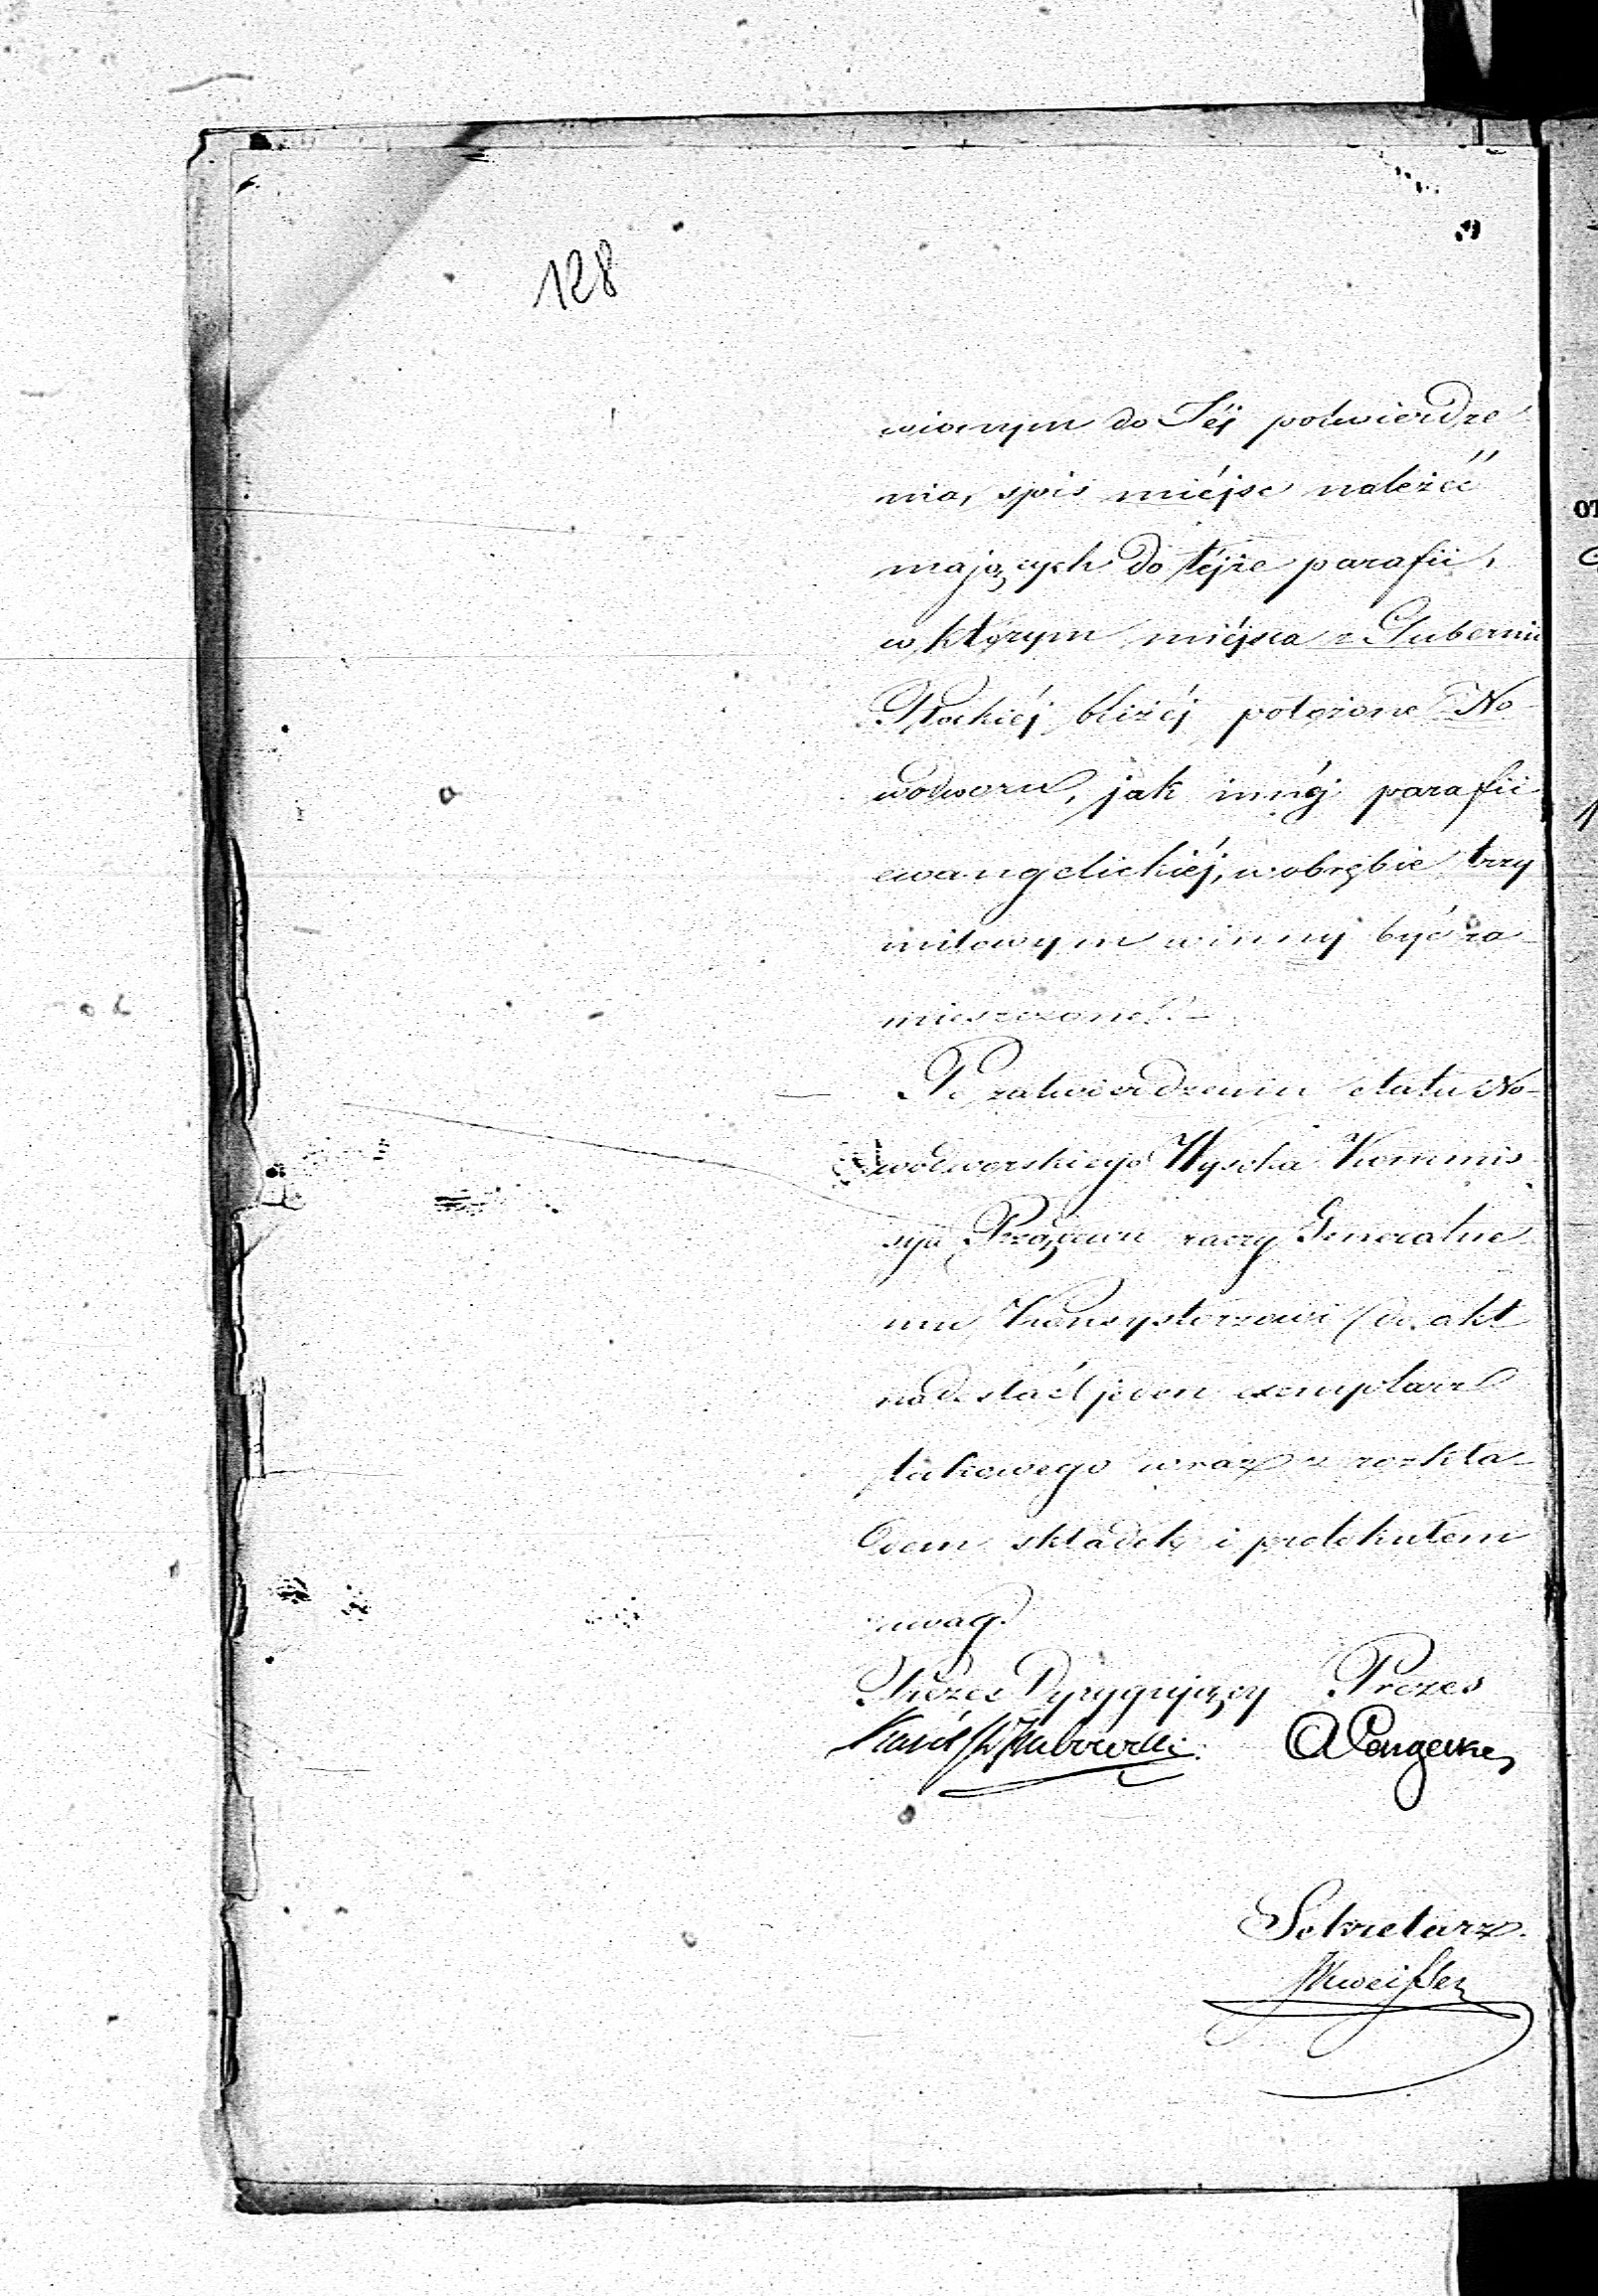 128
wionym do Téj potwierdze
nia, spis miéjsc należéć
mających do téjże parafii,
w którym miéjsca z Gubernii
Płockiéj bliżéj położone No-
wodworu, jak innéj parafii
ewangelickiéj, w obrębie trzy
milowym winny być za-
mieszczone.-
Po zatwierdzeniu etatu No-
wodworskiego Wysoka Kommis-
syja Rządowa raczy Generalne-
mu Konsystorzowi do akt
nadesłać jeden exemplarz
takowego wraz z rozkła-
dem składek i protokułem
uwag.
Prezes Dyrygujący Prezes
Sekretarz.